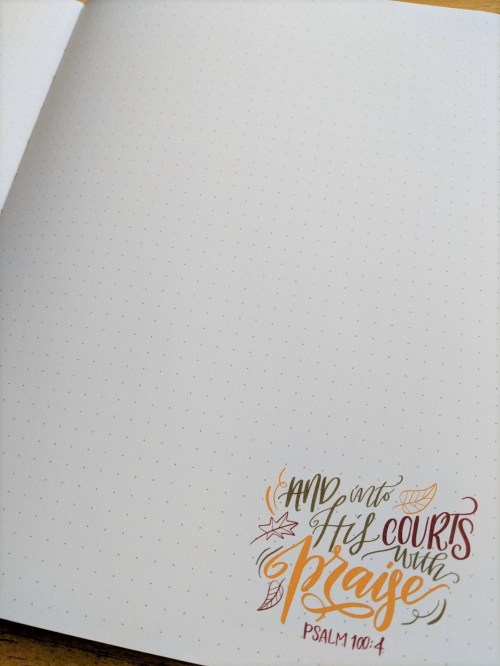 AND into
His COURTS
with
praise
PSALM 100:4